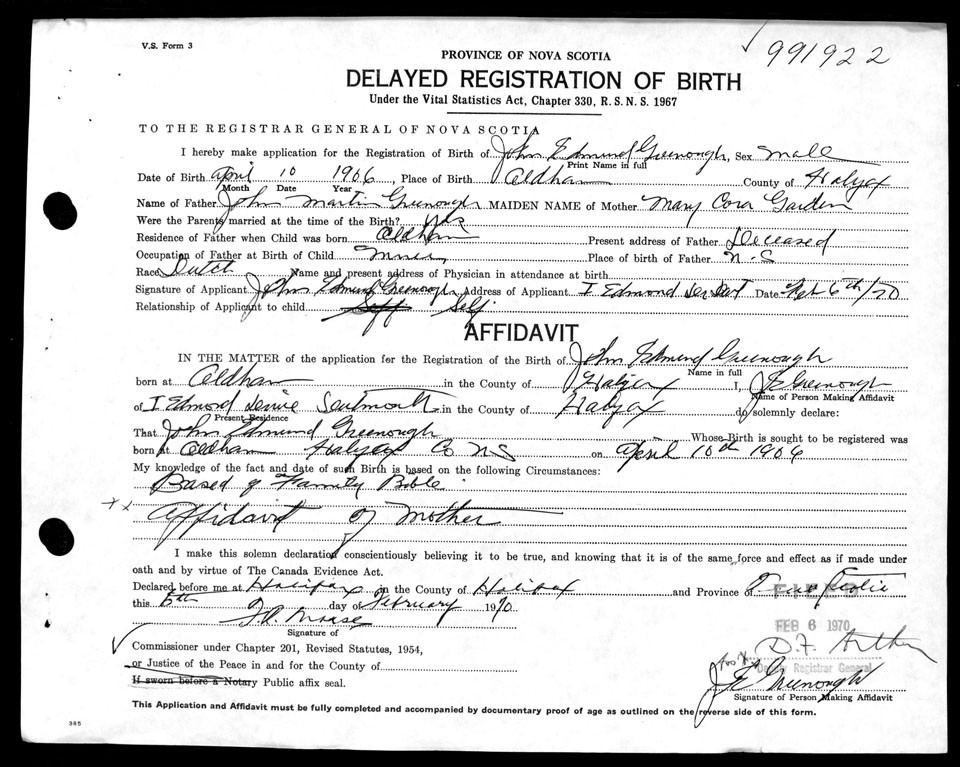 V.S. Form 3
991922
PROVINCE OF NOVA SCOTIA
DELAYED REGISTRATION OF BIRTH
Under the Vital Statistics Act, Chapter 330, R.S.N.S. 1967
TO THE REGISTRAR GENERAL OF NOVA SCOTIA
I hereby make application for the Registration of Birth of John Edmund Greenough, Sex male
Print Name in full
Date of Birth April 10 1906, Place of Birth Oldham County of Halyfax
Month Date Year
Name of Father John Martin Greenough MAIDEN NAME of Mother Mary Cora Garden
Were the Parents married at the time of the Birth? Yds
Residence of Father when Child was born Oldham Present address of Father Deceased
Occupation of Father at Birth of Child Miner Place of birth of Father N-S
Race Dutch Name and present address of Physician in attendance at birth
Signature of Applicant John Edmund Greenough Address of Applicant 1 Edmond Date 6th/70
Relationship of Applicant to child Self
AFFIDAVIT
IN THE MATTER of the application for the Registration of the Birth of John Edmund Greenough
Name in full
born at Oldham in the County of Halyfax I, J E Greenough
Name of Person Making Affidavit
of 1 Edmond in the County of Halyfax do solemnly declare:
Present Residence
That John Edmund Greenough Whose Birth is sought to be registered was
born at Oldham Halyfax Co NS on April 10th 1906
My knowledge of the fact and date of such Birth is based on the following Circumstances:
Based of Family Bible
Affidavit of Mother
I make this solemn declaration conscientiously believing it to be true, and knowing that it is of the same force and effect as if made under
oath and by virtue of The Canada Evidence Act.
Declared before me at Halifax in the County of Halifax and Province of Nova Scotia
FILED
this 5th day of February 1970
FEB 6 1970
Signature of
Commissioner under Chapter 201, Revised Statutes, 1954,
or Justice of the Peace in and for the County of
Deputy Registrar General
If sworn before a Notary Public affix seal.
J E Greenough
Signature of Person Making Affidavit
This Application and Affidavit must be fully completed and accompanied by documentary proof of age as outlined on the reverse side of this form.
385